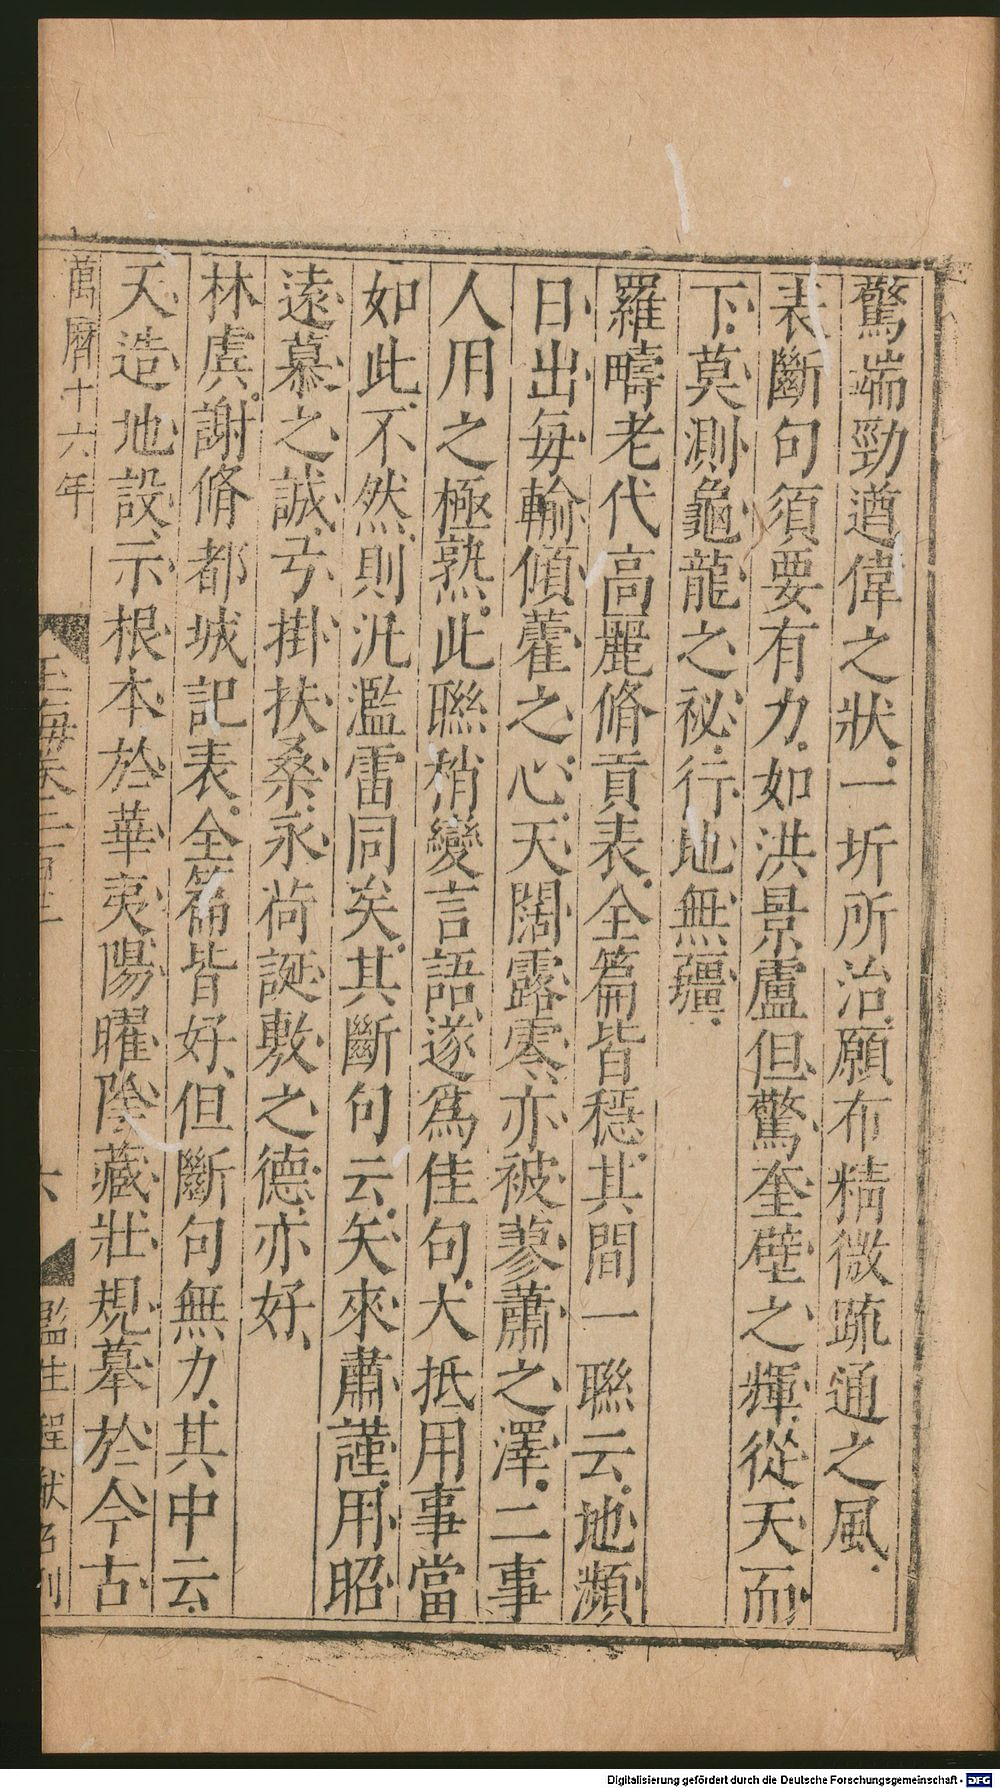 驚端勁遒偉之狀一圻所治願布精微疏通之風
表斷句須要有力如洪景盧但驚奎壁之輝從天而
下莫測龜龍之祕行地無疆
羅疇老代高麗脩貢表全篇皆穩其間一聯云地瀕
日出每輸傾藿之心天闊露零亦被蓼蕭之澤二事
人用之極熟此聯稍變言語遂爲佳句大抵用事當
如此不然則汎濫雷同矣其斷句云矢來肅謹用昭
遠慕之誠弓掛扶桑永荷誕敷之德亦好
林虞謝脩都城記表全篇皆好但斷句無力其中云
天造地設示根本於華夷陽曜陰藏壯規摹於今古
萬曆十六年
玉海卷二百三
六
監生程猷召刊
Digitalisierung gefördert durch die Deutsche Forschungsgemeinschaft - DFG